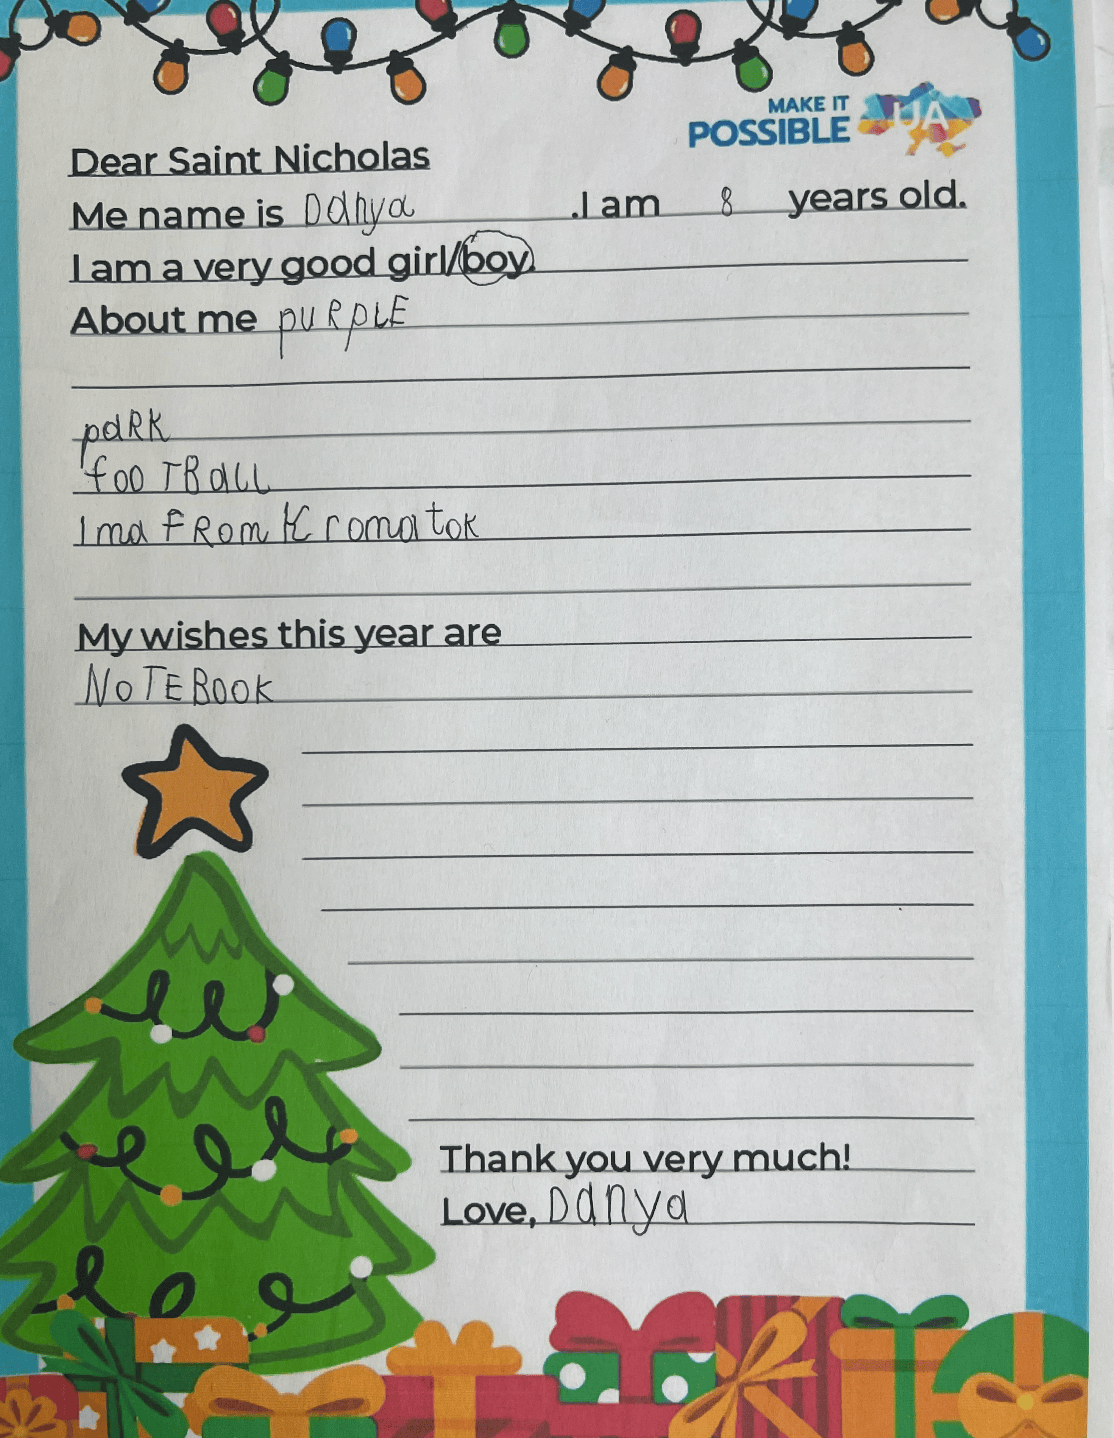 MAKE IT
POSSIBLE UA
Dear Saint Nicholas
Me name is Danya .I am 8 years old.
I am a very good girl/boy.
About me PURPLE
PARK
FOOTBALL
Ima FROM Kromatok
My wishes this year are
NOTEBOOK
Thank you very much!
Love, Danya